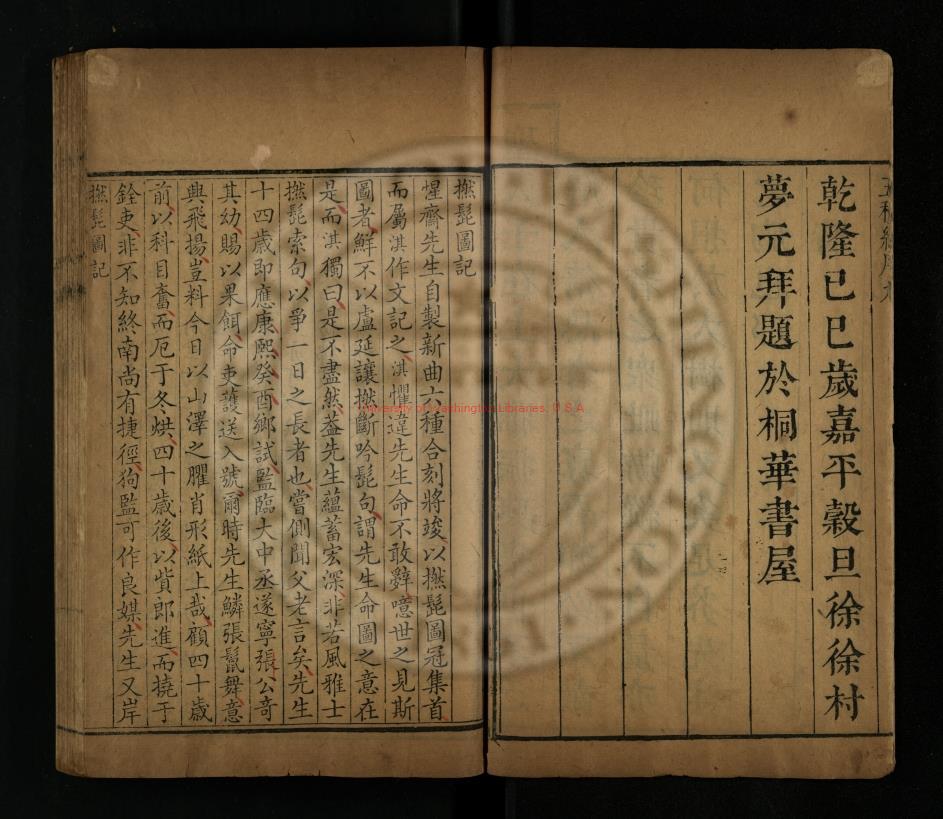 乾隆已巳歲嘉平穀旦徐徐村
夢元拜題於桐華書屋
撚髭圖記
惺齋先生自製新曲六種合刻將竣以撚髭圖冠集首
而屬淇作文記之淇懼違先生命不敢辭噫世之見斯
圖者鮮不以盧延讓撚斷吟髭句謂先生命圖之意在
是而淇獨曰是不盡然葢先生蘊蓄宏深非若風雅士
撚髭索句以爭一日之長者也嘗側聞父老言矣先生
十四歲即應康熙癸酉鄉試監臨大中丞遂寧張公奇
其幼賜以果餌命吏護送入號爾時先生鱗張鬣舞意
興飛揚豈料今日以山澤之臞肖形紙上哉顧四十歲
前以科目奮而厄于冬烘四十歲後以貲郎進而撓于
銓吏非不知終南尚有捷徑狗監可作良媒先生又岸
撚髭圖記
University of Washington Libraries, U.S.A